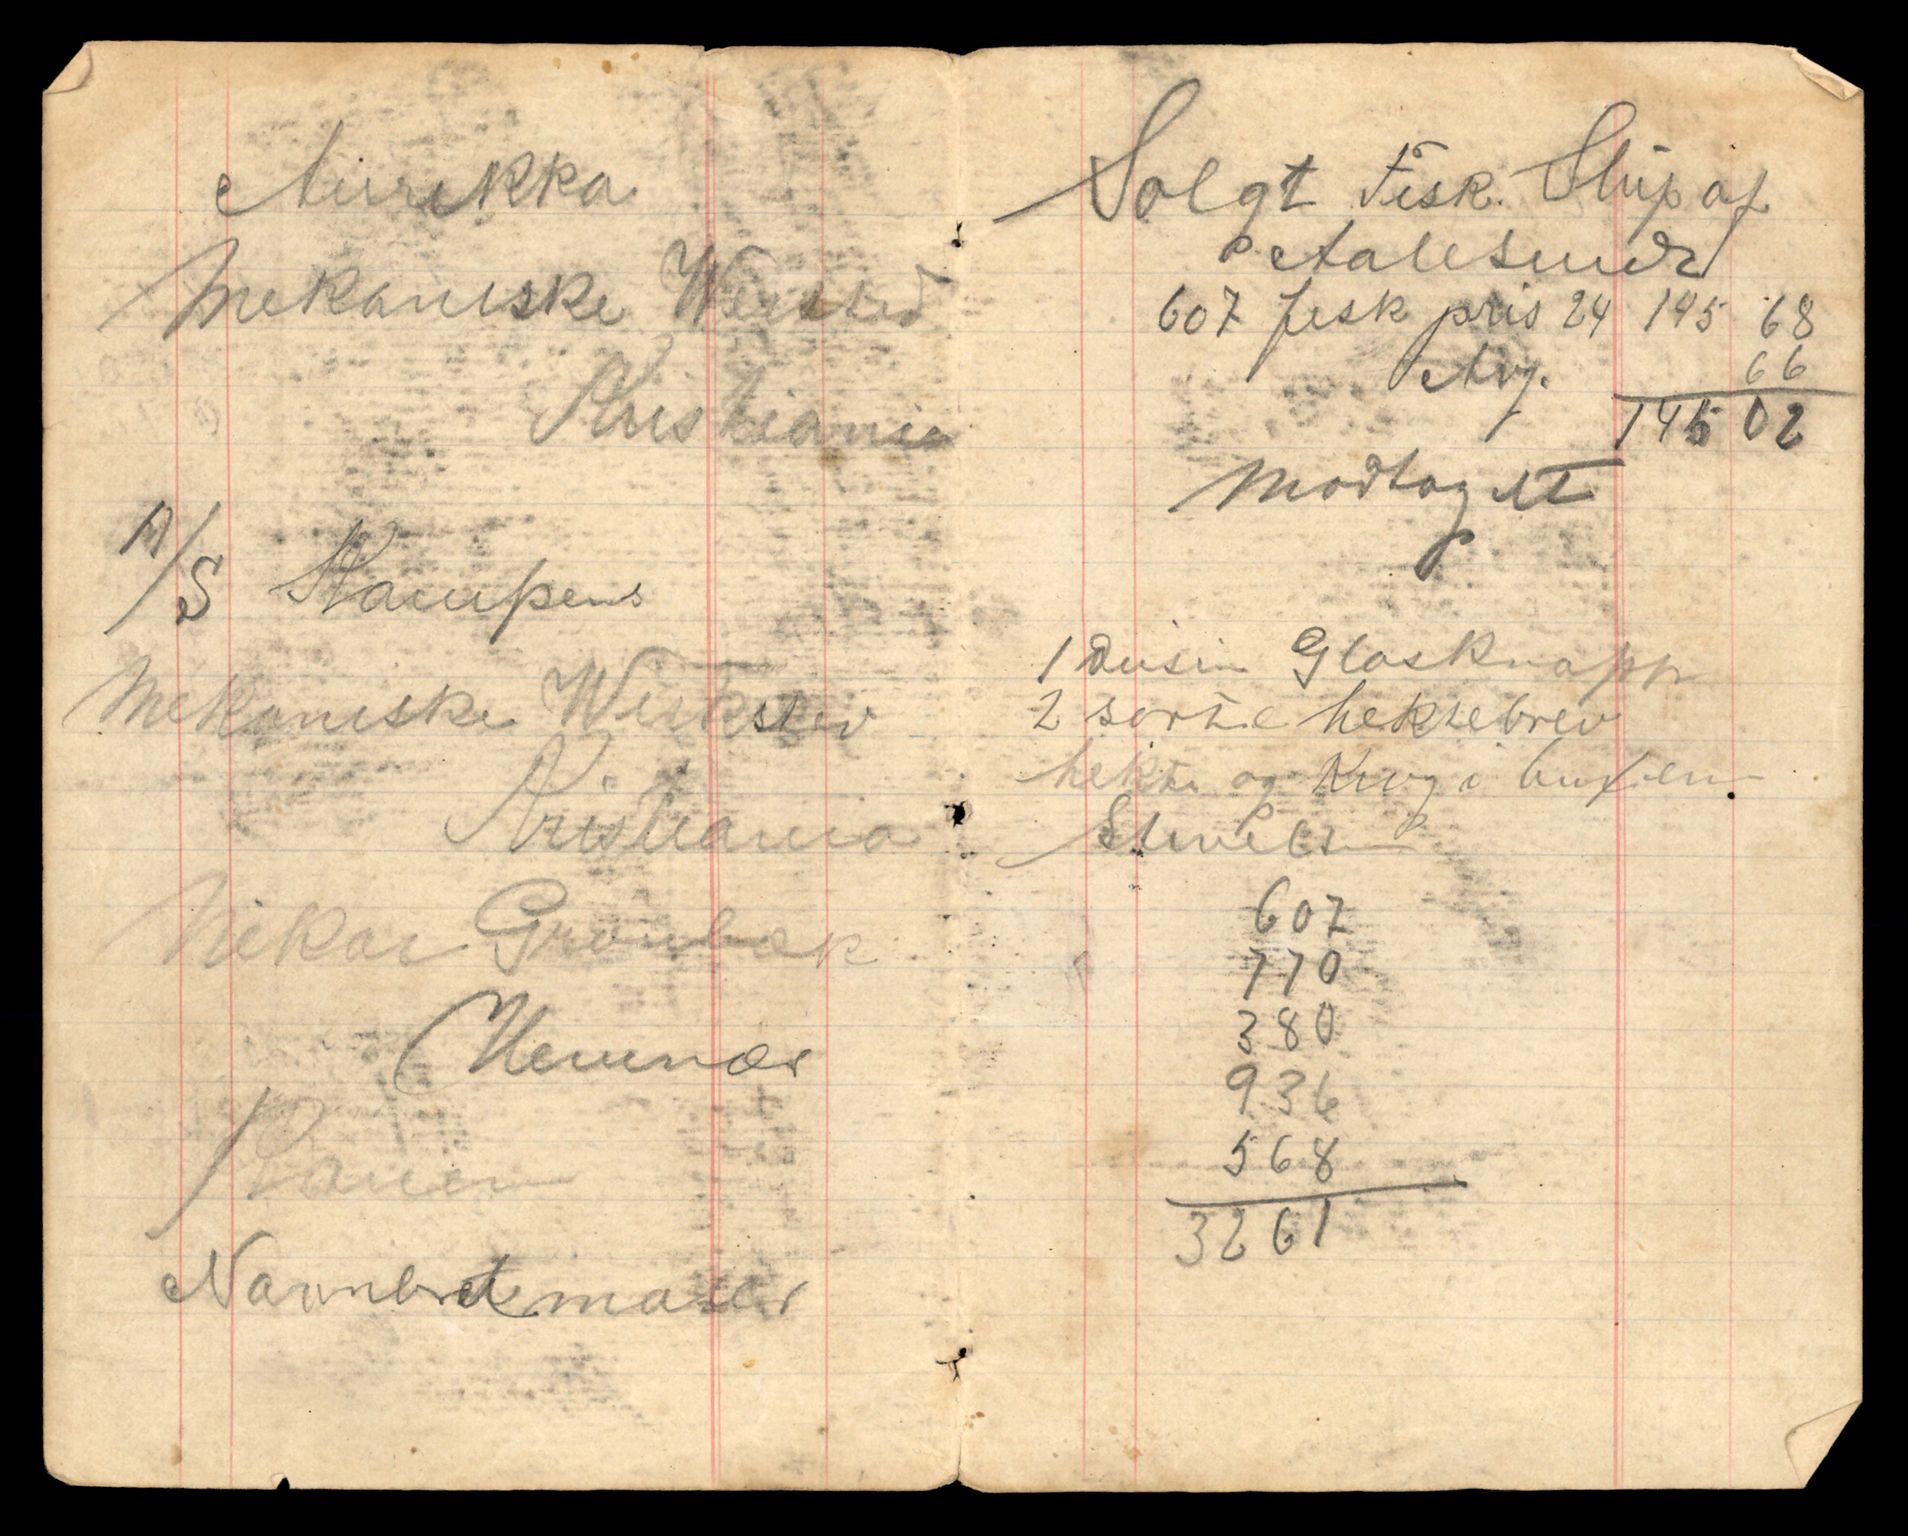 Aurekka
Mekaniske Werksted
Kristiania
A/S Kampens
Mekaniske Werksted
Kristiania
Mekar Grønbæk
Hemnæs
Ranen
Navnbret maaler
Solgt Fisk. Slup af
Aalesund
607 fisk pris 24 145 68
Avg. 66
145 02
Modtaget
1 Dusin Glasknapp
2 sorte hektebrev
hekte og Krog i buxen
607
770
380
936
568
3261